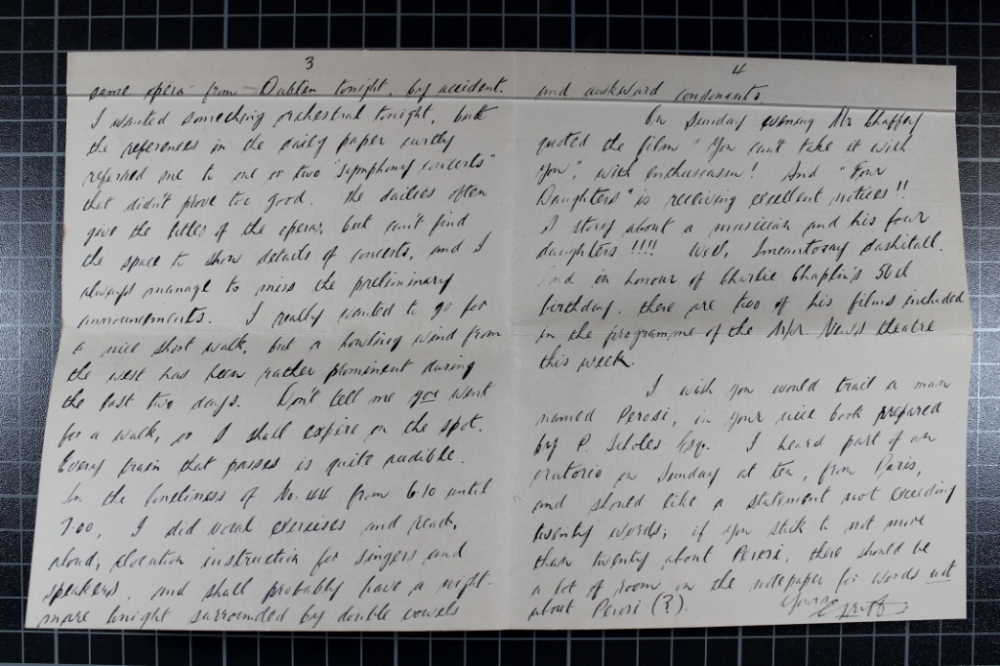 3
same opera from Dublin tonight, by accident.
I wanted something orchestral tonight, but
the references in the daily paper curtly
referred me to one or two "symphony concerts"
that didn't prove too good. The dailies often
give the titles of the operas, but can't find
the space to show details of concerts, and I
always manage to miss the preliminary
announcements. I really wanted to go for
a nice short walk, but a howling wind from
the west has been rather prominent during
the last two days. Don't tell me you went
for a walk, or I shall expire on the spot.
Every train that passes is quite audible.
In the loneliness of No. 44 from 6.10 until
7.00, I did vocal exercises and read,
aloud, elocution instruction for singers and
speakers, and shall probably have a night-
mare tonight surrounded by double vowels
4
and awkward consonants.
On Sunday evening Mr Chaffey
quoted the film "You can't take it with
You", with enthusiasm! And "Four
Daughters" is receiving excellent notices!!
A story about a musician and his four
daughters!!!! Well, Imeantosay dashitall.
And in honour of Charlie Chaplin's 50th
birthday, there are two of his films included
in the programme of the News theatre
this week.
I wish you would trail a man
named Perosi, in your nice book prepared
by P. Scholes Esq. I heard part of an
oratorio on Sunday at tea, from Paris,
and should like a statement not exceeding
twenty words; if you stick to not more
than twenty about Perosi, there should be
a lot of room on the notepaper for words not
about Perosi (?).
Yours